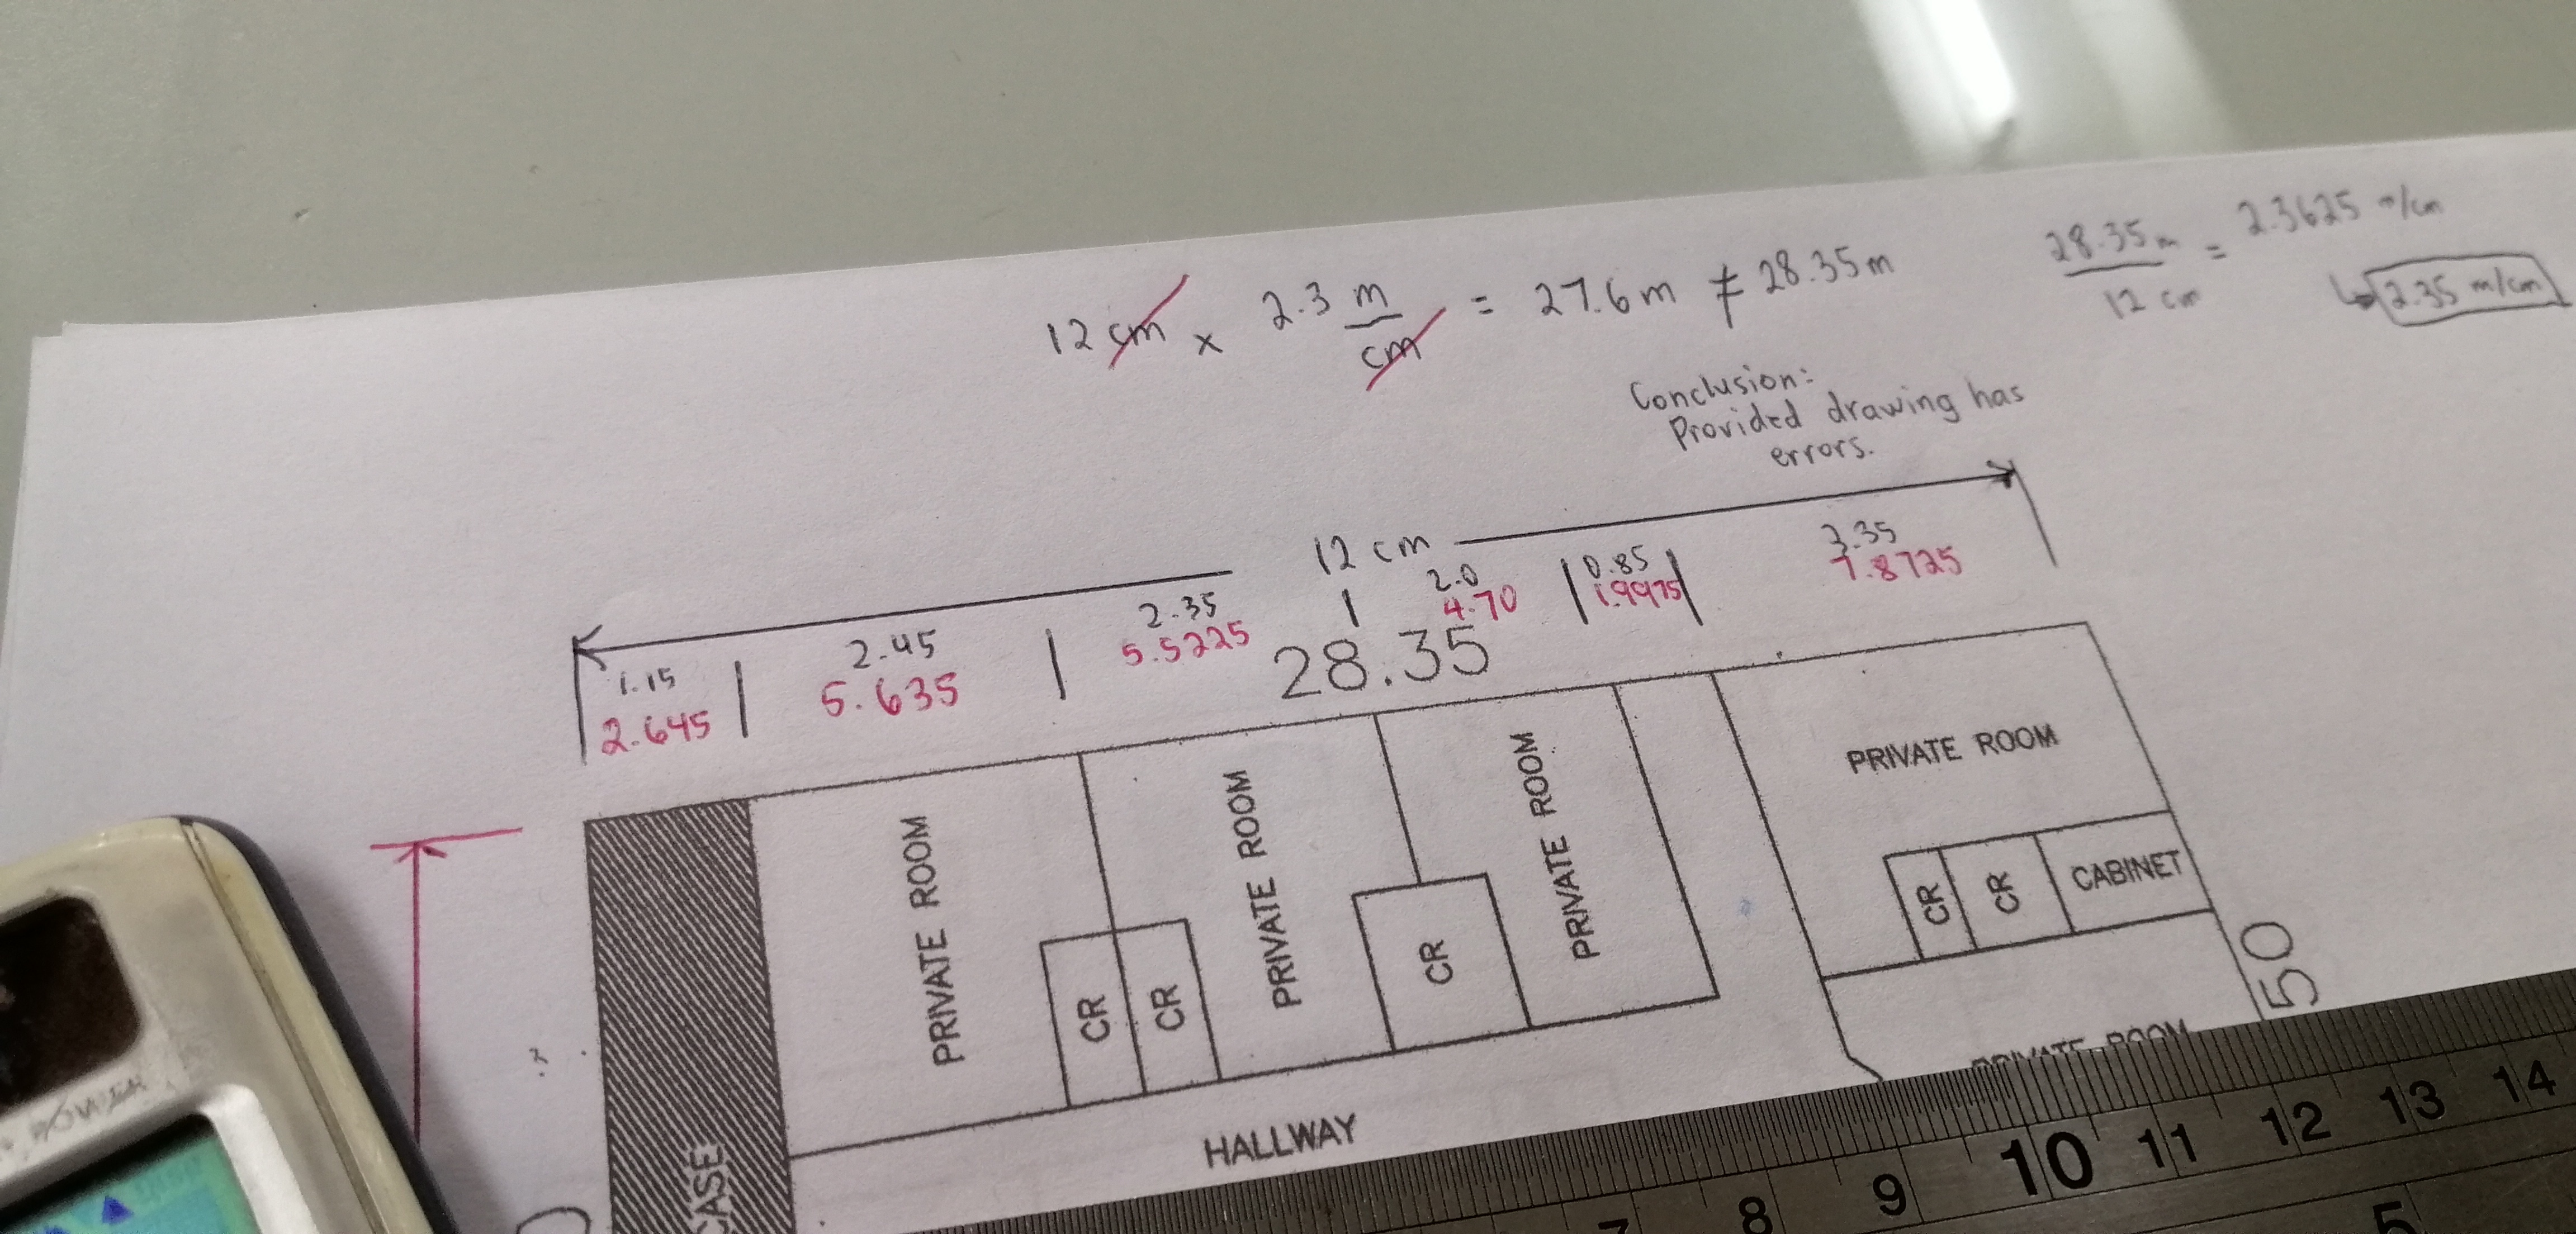 12 cm x 2.3 m/cm = 27.6 m ≠ 28.35 m
28.35 m / 12 cm = 2.3625 m/cm
↳ 2.35 m/cm
Conclusion:
Provided drawing has
errors.
12 cm
1.15 | 2.45 | 2.35 | 2.0 | 0.85 | 3.35
2.645 | 5.635 | 5.5225 | 4.70 | 1.9975 | 7.8725
28.35
PRIVATE ROOM
PRIVATE ROOM
PRIVATE ROOM
PRIVATE ROOM
CR
CR
CR
CR
CR
CABINET
50
PRIVATE ROOM
HALLWAY
CASE
POWER
7 8 9 10 11 12 13 14
5